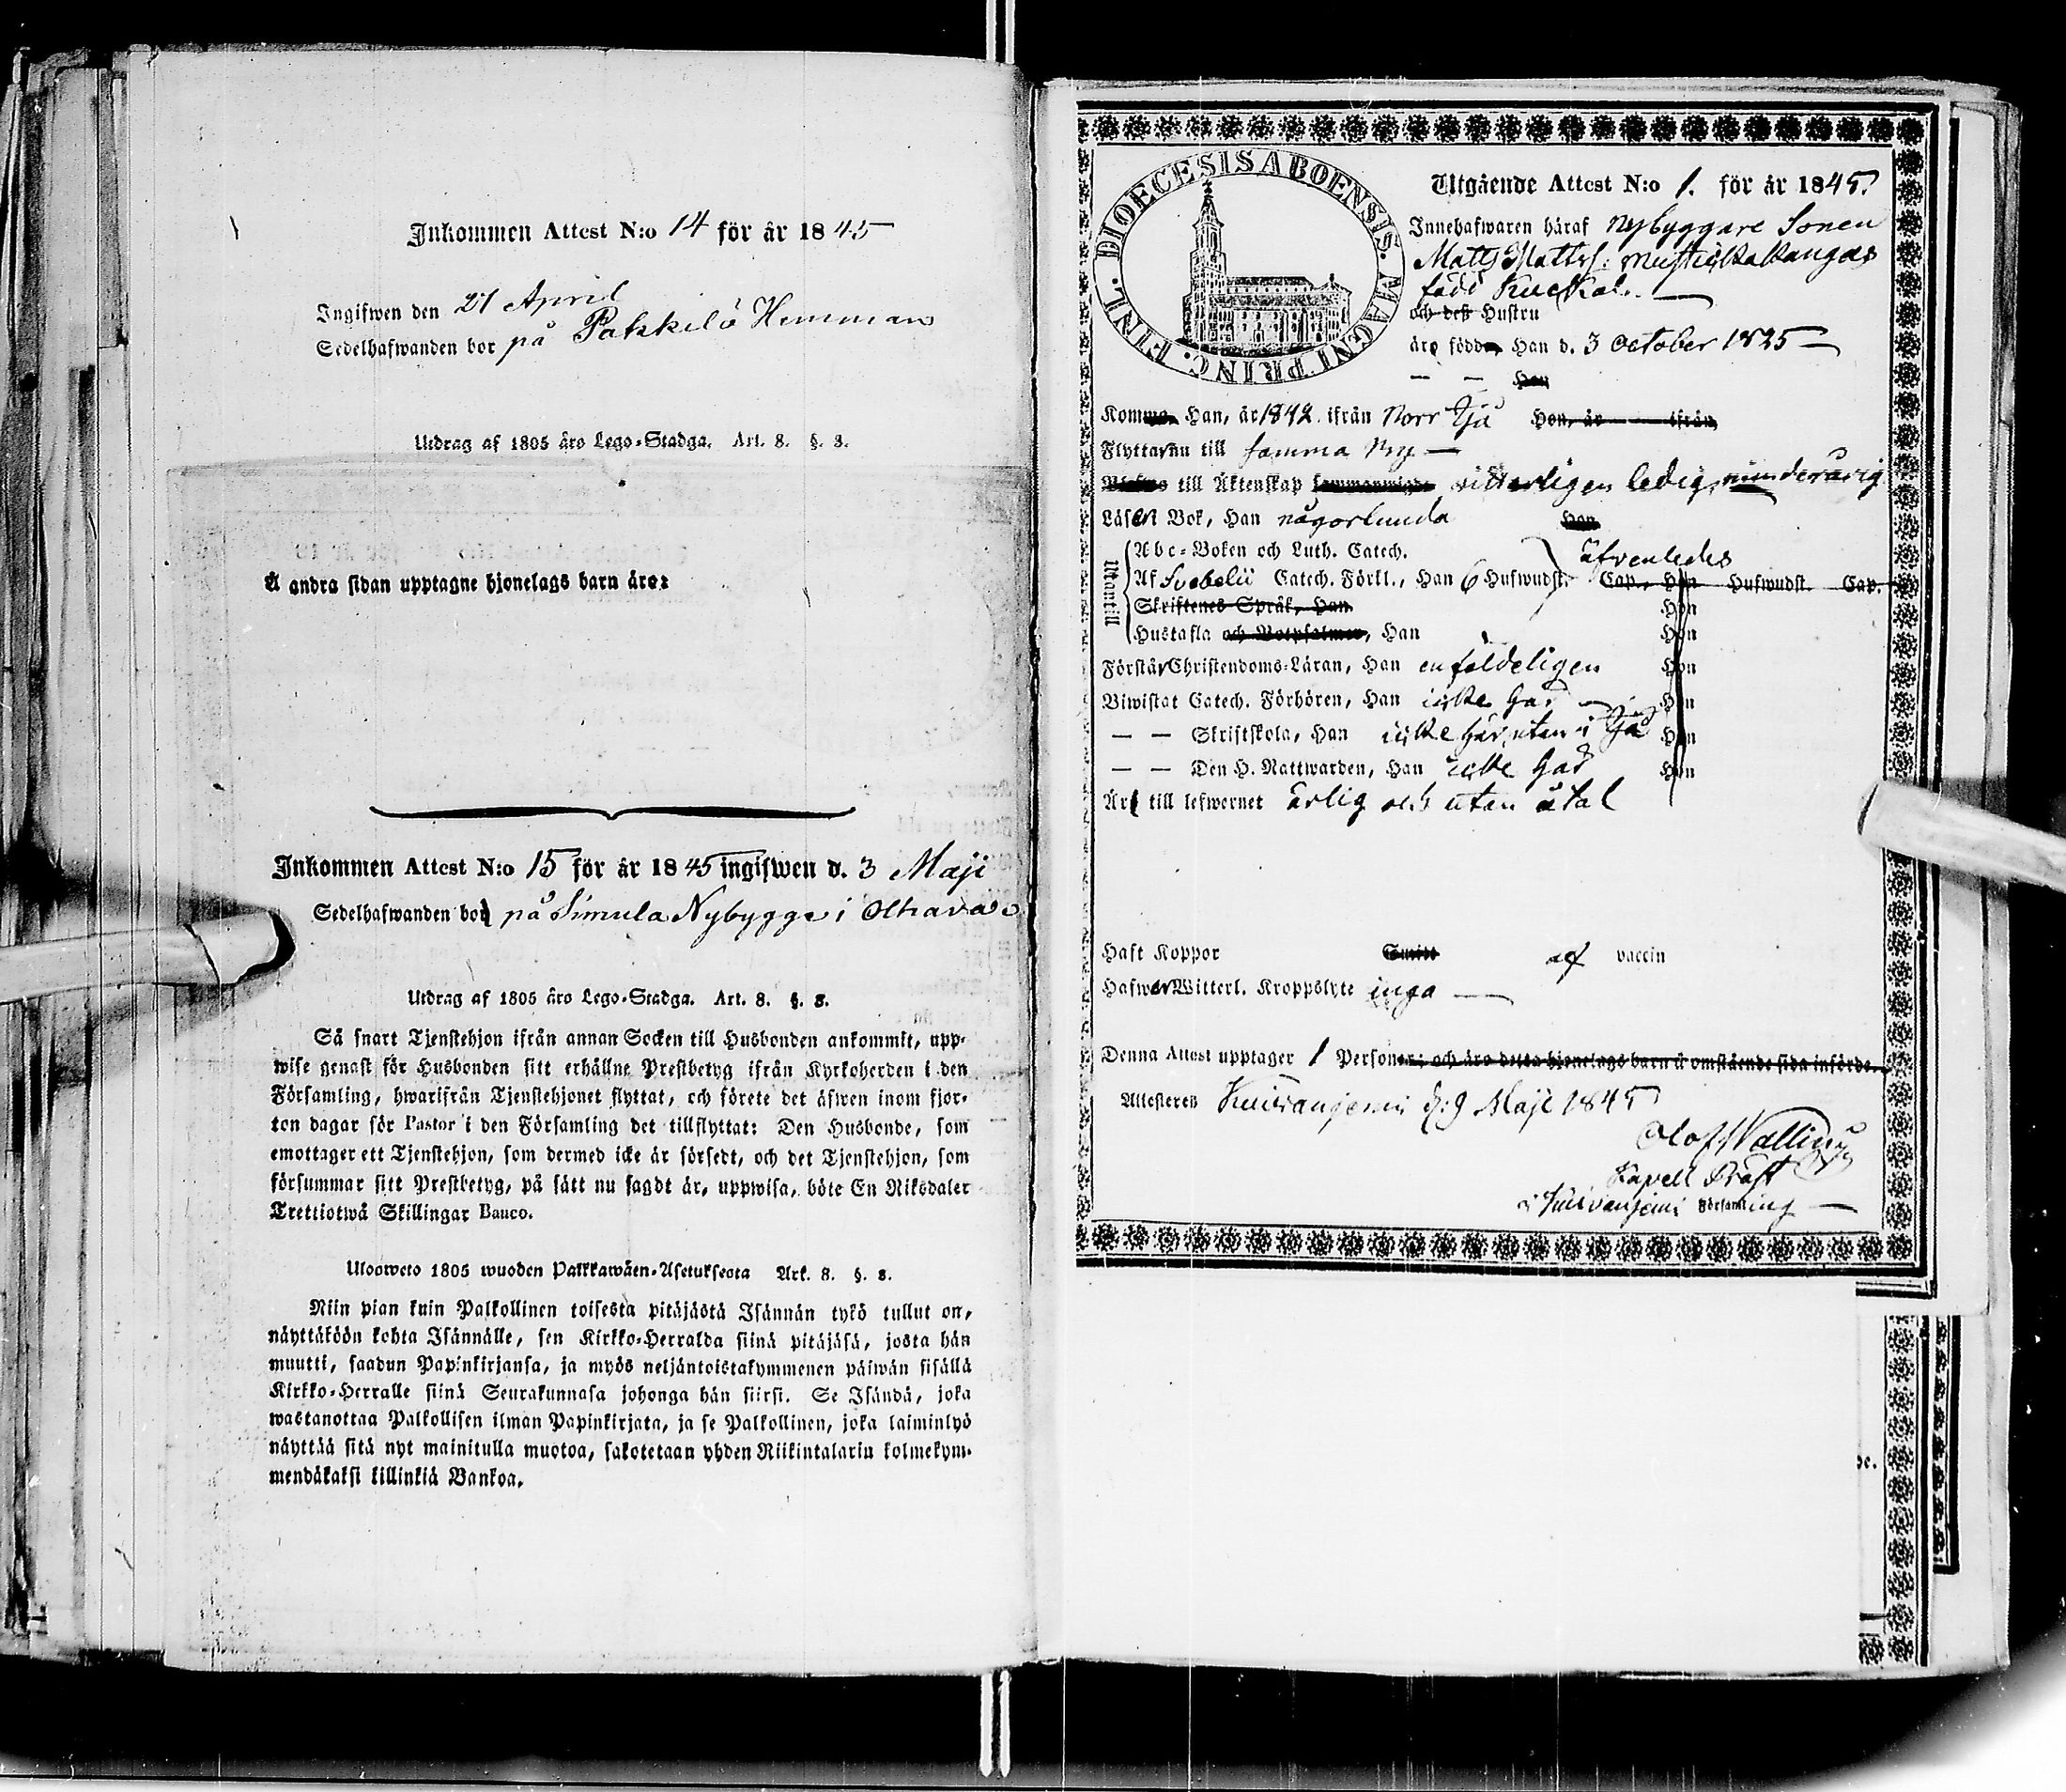 Inkommen Attest N:o 14 för år 1845
Ingifwen den 21 April
Sedelhafwanden bor på Pakkilö Hemman
Utdrag af 1805 års Lego-Stadga. Art. 8. §. 8.
Å andra sidan upptagne hjonelags barn äro:
Inkommen Attest N:o 15 för år 1845 ingifwen d. 3 Maji
Sedelhafwanden bor på Simula Nybygge i
Utdrag af 1805 års Lego-Stadga. Art. 8. §. 8.
Så snart Tjenstehjon ifrån annan Socken till Husbonden ankommit, upp-
wise genast för Husbonden sitt erhållne Prestbetyg ifrån Kyrkoherden i den
Församling, hwarifrån Tjenstehjonet flyttat, och förete det äfwen inom fjor-
ton dagar för Pastor i den Församling det tillflyttat: Den Husbonde, som
emottager ett Tjenstehjon, som dermed icke är försedt, och det Tjenstehjon, som
försummar sitt Prestbetyg, på sätt nu sagdt är, uppwisa, böte En Riksdaler
Trettiotwå Skillingar Banco.
Uloosweto 1805 wuoden Palkkawäen-Asetuksesta Art. 8. §. 8.
Niin pian kuin Palkollinen toisesta pitäjästä Isännän tykö tullut on,
näyttäköön kohta Isännälle, sen Kirkko-Herralda siinä pitäjäsä, josta hän
muutti, saadun Papinkirjansa, ja myös neljäntoistakymmenen päiwän sisällä
Kirkko-Herralle siinä Seurakunnasa johonga hän siirsi. Se Isändä, joka
wastanottaa Palkollisen ilman Papinkirjata, ja se Palkollinen, joka laiminlyö
näyttää sitä nyt mainitulla muotoa, sakotetaan yhden Riikintalarin kolmekym-
mendäkaksi killinkiä Bankoa.
DIOECESIS ABOENSIS. MAGNI PRINC. FINL.
Utgående Attest N:o 1. för år 1845.
Innehafwaren häraf Nybyggare Sonen
Matts Mattss:
född
och dess Hustru
äro födde, Han d. 3 October 1825
— — Hon
Komma, Han, år 1842. ifrån Norr Ijå Hon, år — ifrån
Flytta nu till samma Ny
till Äktenskap witterligen ledig, minderårig
Läsa i Bok, Han någorlunda Hon
Utantill
Abc-Boken och Luth. Catech. äfvenledes
Af Svebelii Catech. Förkl., Han 6 Hufwudst. Cap., Hon Hufwudst. Cap.
Skriftenes Språk, Han Hon
Hustafla och Botpsalmer, Han Hon
Förstår Christendoms-Läran, Han enfaldeligen Hon
Biwistat Catech. Förhören, Han icke här Hon
— — Skriftskola, Han icke här, utan i Ijå Hon
— — Den H. Nattwarden, Han icke här Hon
Är till lefwernet ärlig och utan åtal
Haft Koppor af vaccin
Hafwer Witterl. Kroppslyte inga
Denna Attest upptager 1 Personer; och äro detta hjonelags barn å omstående sida införde.
Attesteren Kuivaniemi d: 9 Maji 1845
Olof Wallin
Kapell Präst
i Kuivaniemi Församling